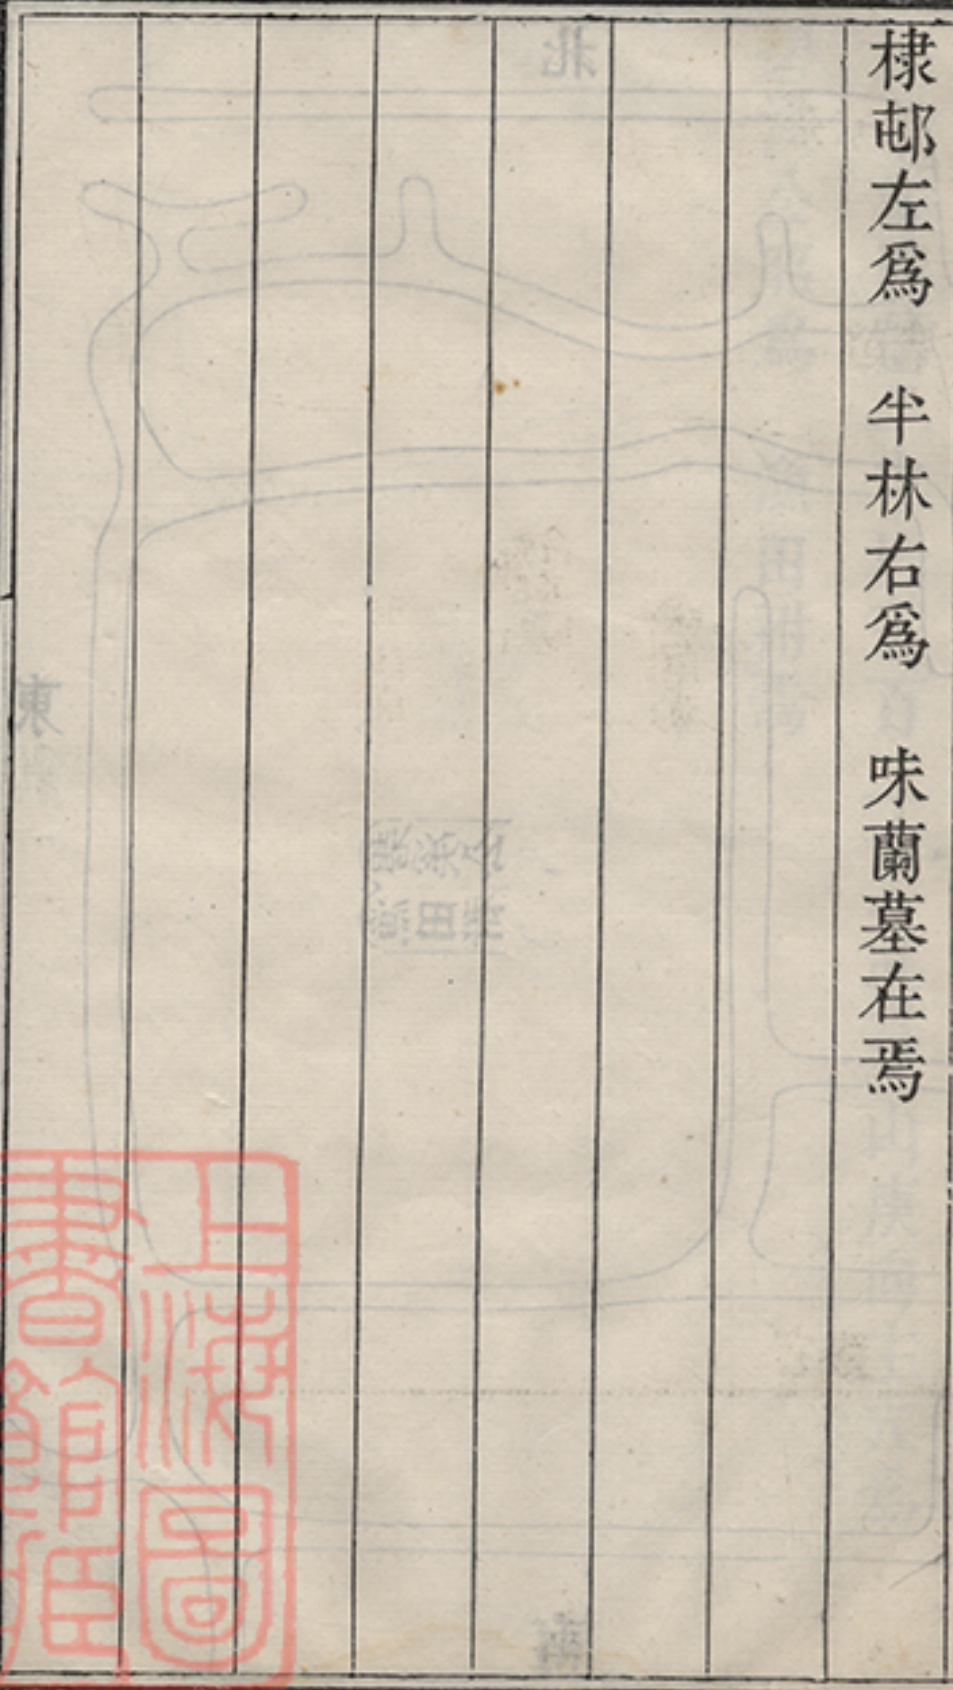 棣邨左爲　半林右爲　味蘭墓在焉
上海圖書館藏